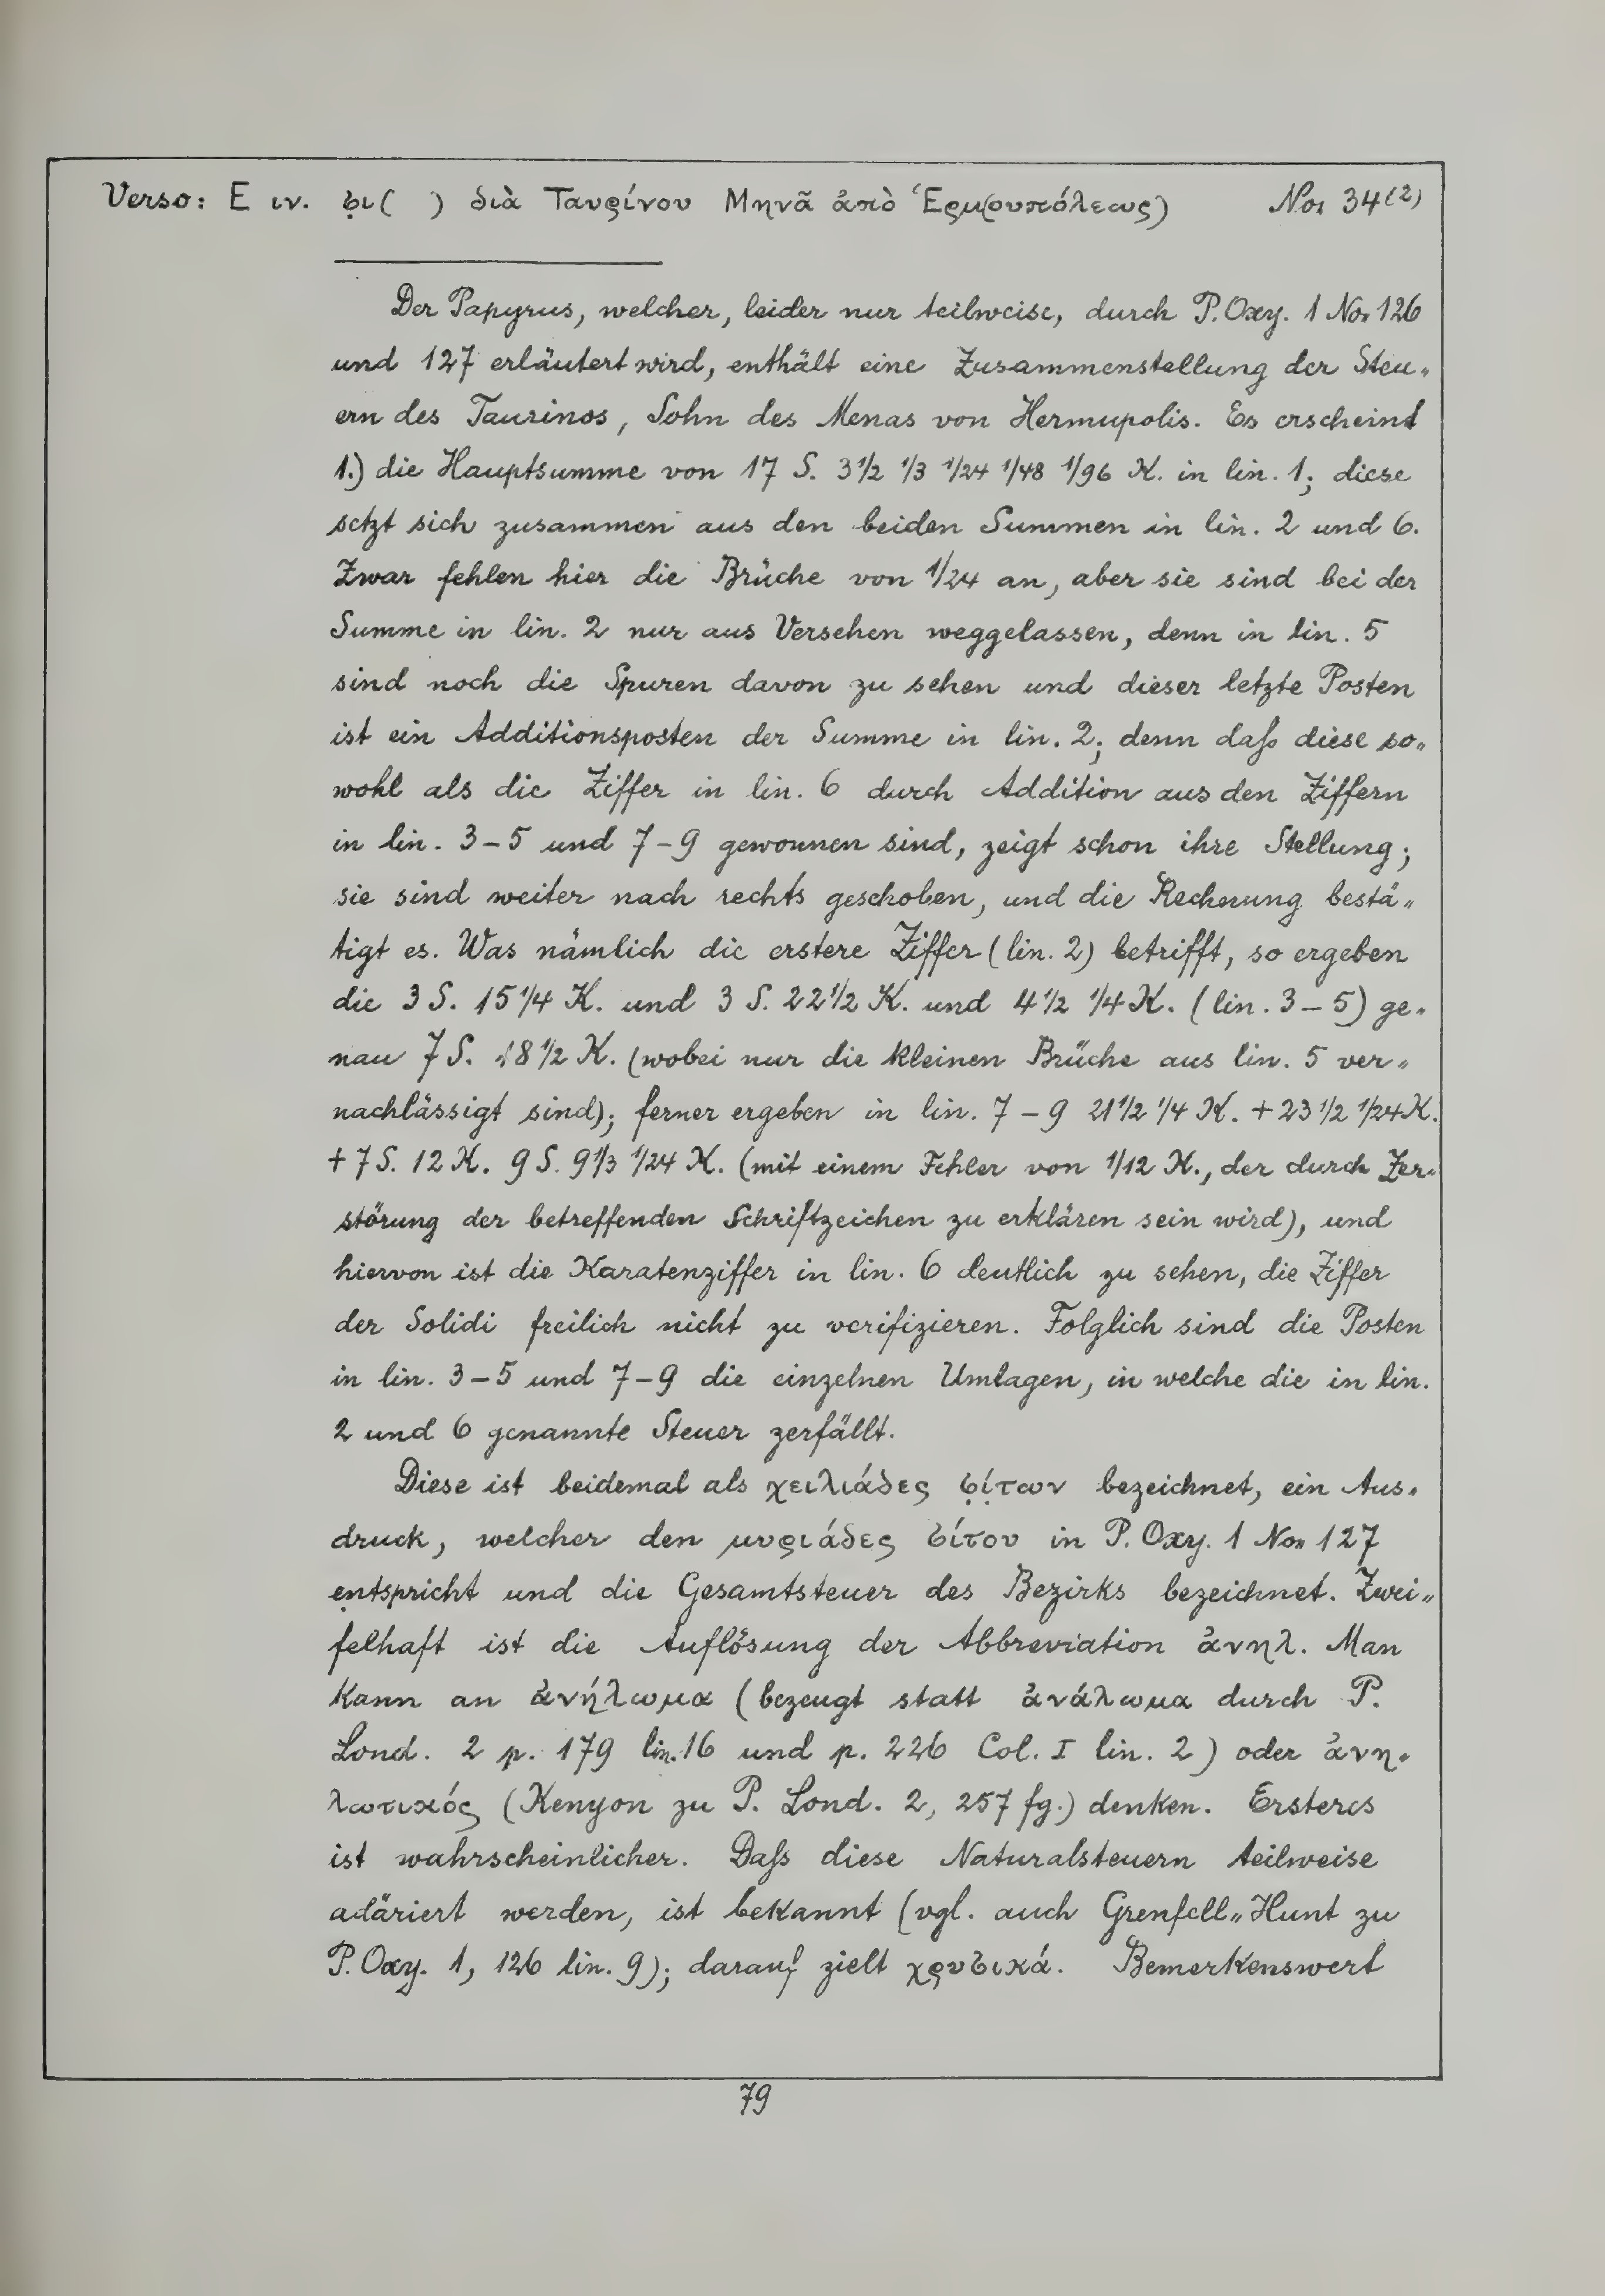 Verso: E ιν. σ̣ι( ) διὰ Ταυρίνου Μηνᾶ ἀπὸ Ἑρμ(ουπόλεως) No. 34(2)
Der Papyrus, welcher, leider nur teilweise, durch P. Oxy. 1 No. 126
und 127 erläutert wird, enthält eine Zusammenstellung der Steu„
ern des Taurinos, Sohn des Menas von Hermupolis. Es erscheint
1.) die Hauptsumme von 17 S. 3 1/2 1/3 1/24 1/48 1/96 K. in lin. 1; diese
setzt sich zusammen aus den beiden Summen in lin. 2 und 6.
Zwar fehlen hier die Brüche von 1/24 an, aber sie sind bei der
Summe in lin. 2 nur aus Versehen weggelassen, denn in lin. 5
sind noch die Spuren davon zu sehen und dieser letzte Posten
ist ein Additionsposten der Summe in lin. 2; denn daſs diese so„
wohl als die Ziffer in lin. 6 durch Addition aus den Ziffern
in lin. 3–5 und 7–9 gewonnen sind, zeigt schon ihre Stellung;
sie sind weiter nach rechts geschoben, und die Rechnung bestä„
tigt es. Was nämlich die erstere Ziffer (lin. 2) betrifft, so ergeben
die 3 S. 15 1/4 K. und 3 S. 22 1/2 K. und 4 1/2 1/4 K. (lin. 3–5) ge„
nau 7 S. 18 1/2 K. (wobei nur die kleinen Brüche aus lin. 5 ver„
nachlässigt sind); ferner ergeben in lin. 7–9 21 1/2 1/4 K. + 23 1/2 1/24 K.
+ 7 S. 12 K. 9 S. 9 1/3 1/24 K. (mit einem Fehler von 1/12 K., der durch Zer„
störung der betreffenden Schriftzeichen zu erklären sein wird), und
hiervon ist die Karatenziffer in lin. 6 deutlich zu sehen, die Ziffer
der Solidi freilich nicht zu verifizieren. Folglich sind die Posten
in lin. 3–5 und 7–9 die einzelnen Umlagen, in welche die in lin.
2 und 6 genannte Steuer zerfällt.
Diese ist beidemal als χειλιάδες σ̣ί̣των bezeichnet, ein Aus„
druck, welcher den μυριάδες σίτου in P. Oxy. 1 No. 127
entspricht und die Gesamtsteuer des Bezirks bezeichnet. Zwei„
felhaft ist die Auflösung der Abbreviation ἀνηλ. Man
kann an ἀνήλωμα (bezeugt statt ἀνάλωμα durch P.
Lond. 2 p. 179 lin. 16 und p. 226 Col. I lin. 2) oder ἀνη„
λωτικός (Kenyon zu P. Lond. 2, 257 fg.) denken. Ersteres
ist wahrscheinlicher. Daſs diese Naturalsteuern teilweise
adäriert werden, ist bekannt (vgl. auch Grenfell„Hunt zu
P. Oxy. 1, 126 lin. 9); darauf zielt χρυσικά. Bemerkenswert
79